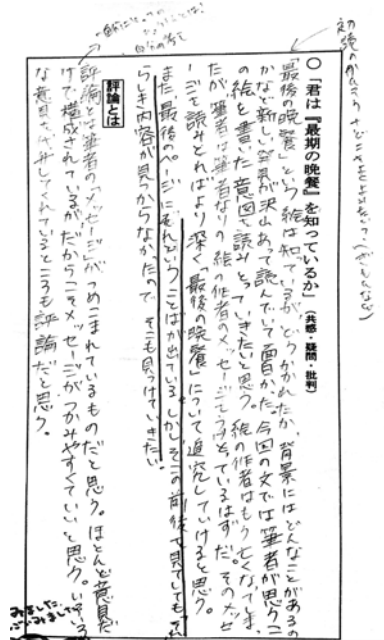 初発のかんそう
○「君は『最期の晩餐』を知っているか」（共感・疑問・批判）
「最後の晩餐」という絵は知っているが、どうかかれたか、背景にはどんなことがあるの
かなど新しい発見が沢山あって読んでいて面白かった。今回の文では筆者が思うこ
の絵を書いた意図を読みとっていきたいと思う。絵の作者はもう亡くなってしま
たが筆者は筆者なりの絵の作者のメッセージをうけとっているはずだ。そのメッセ
ージを読みとればより深く「最後の晩餐」について追究していけると思う。
また最後のページにそれということばが出ている。しかしそこの前後で見ていてもそれ
らしき内容が見つからなかったので そこも見つけていきたい。
評論とは
評論とは筆者の「メッセージ」がつめこまれているものだと思う。ほとんど意見だ
けで構成されているが、だからこそメッセージがつかみやすくていいと思う。いろいろ
な意見を
ているところも評論だと思う。
みました